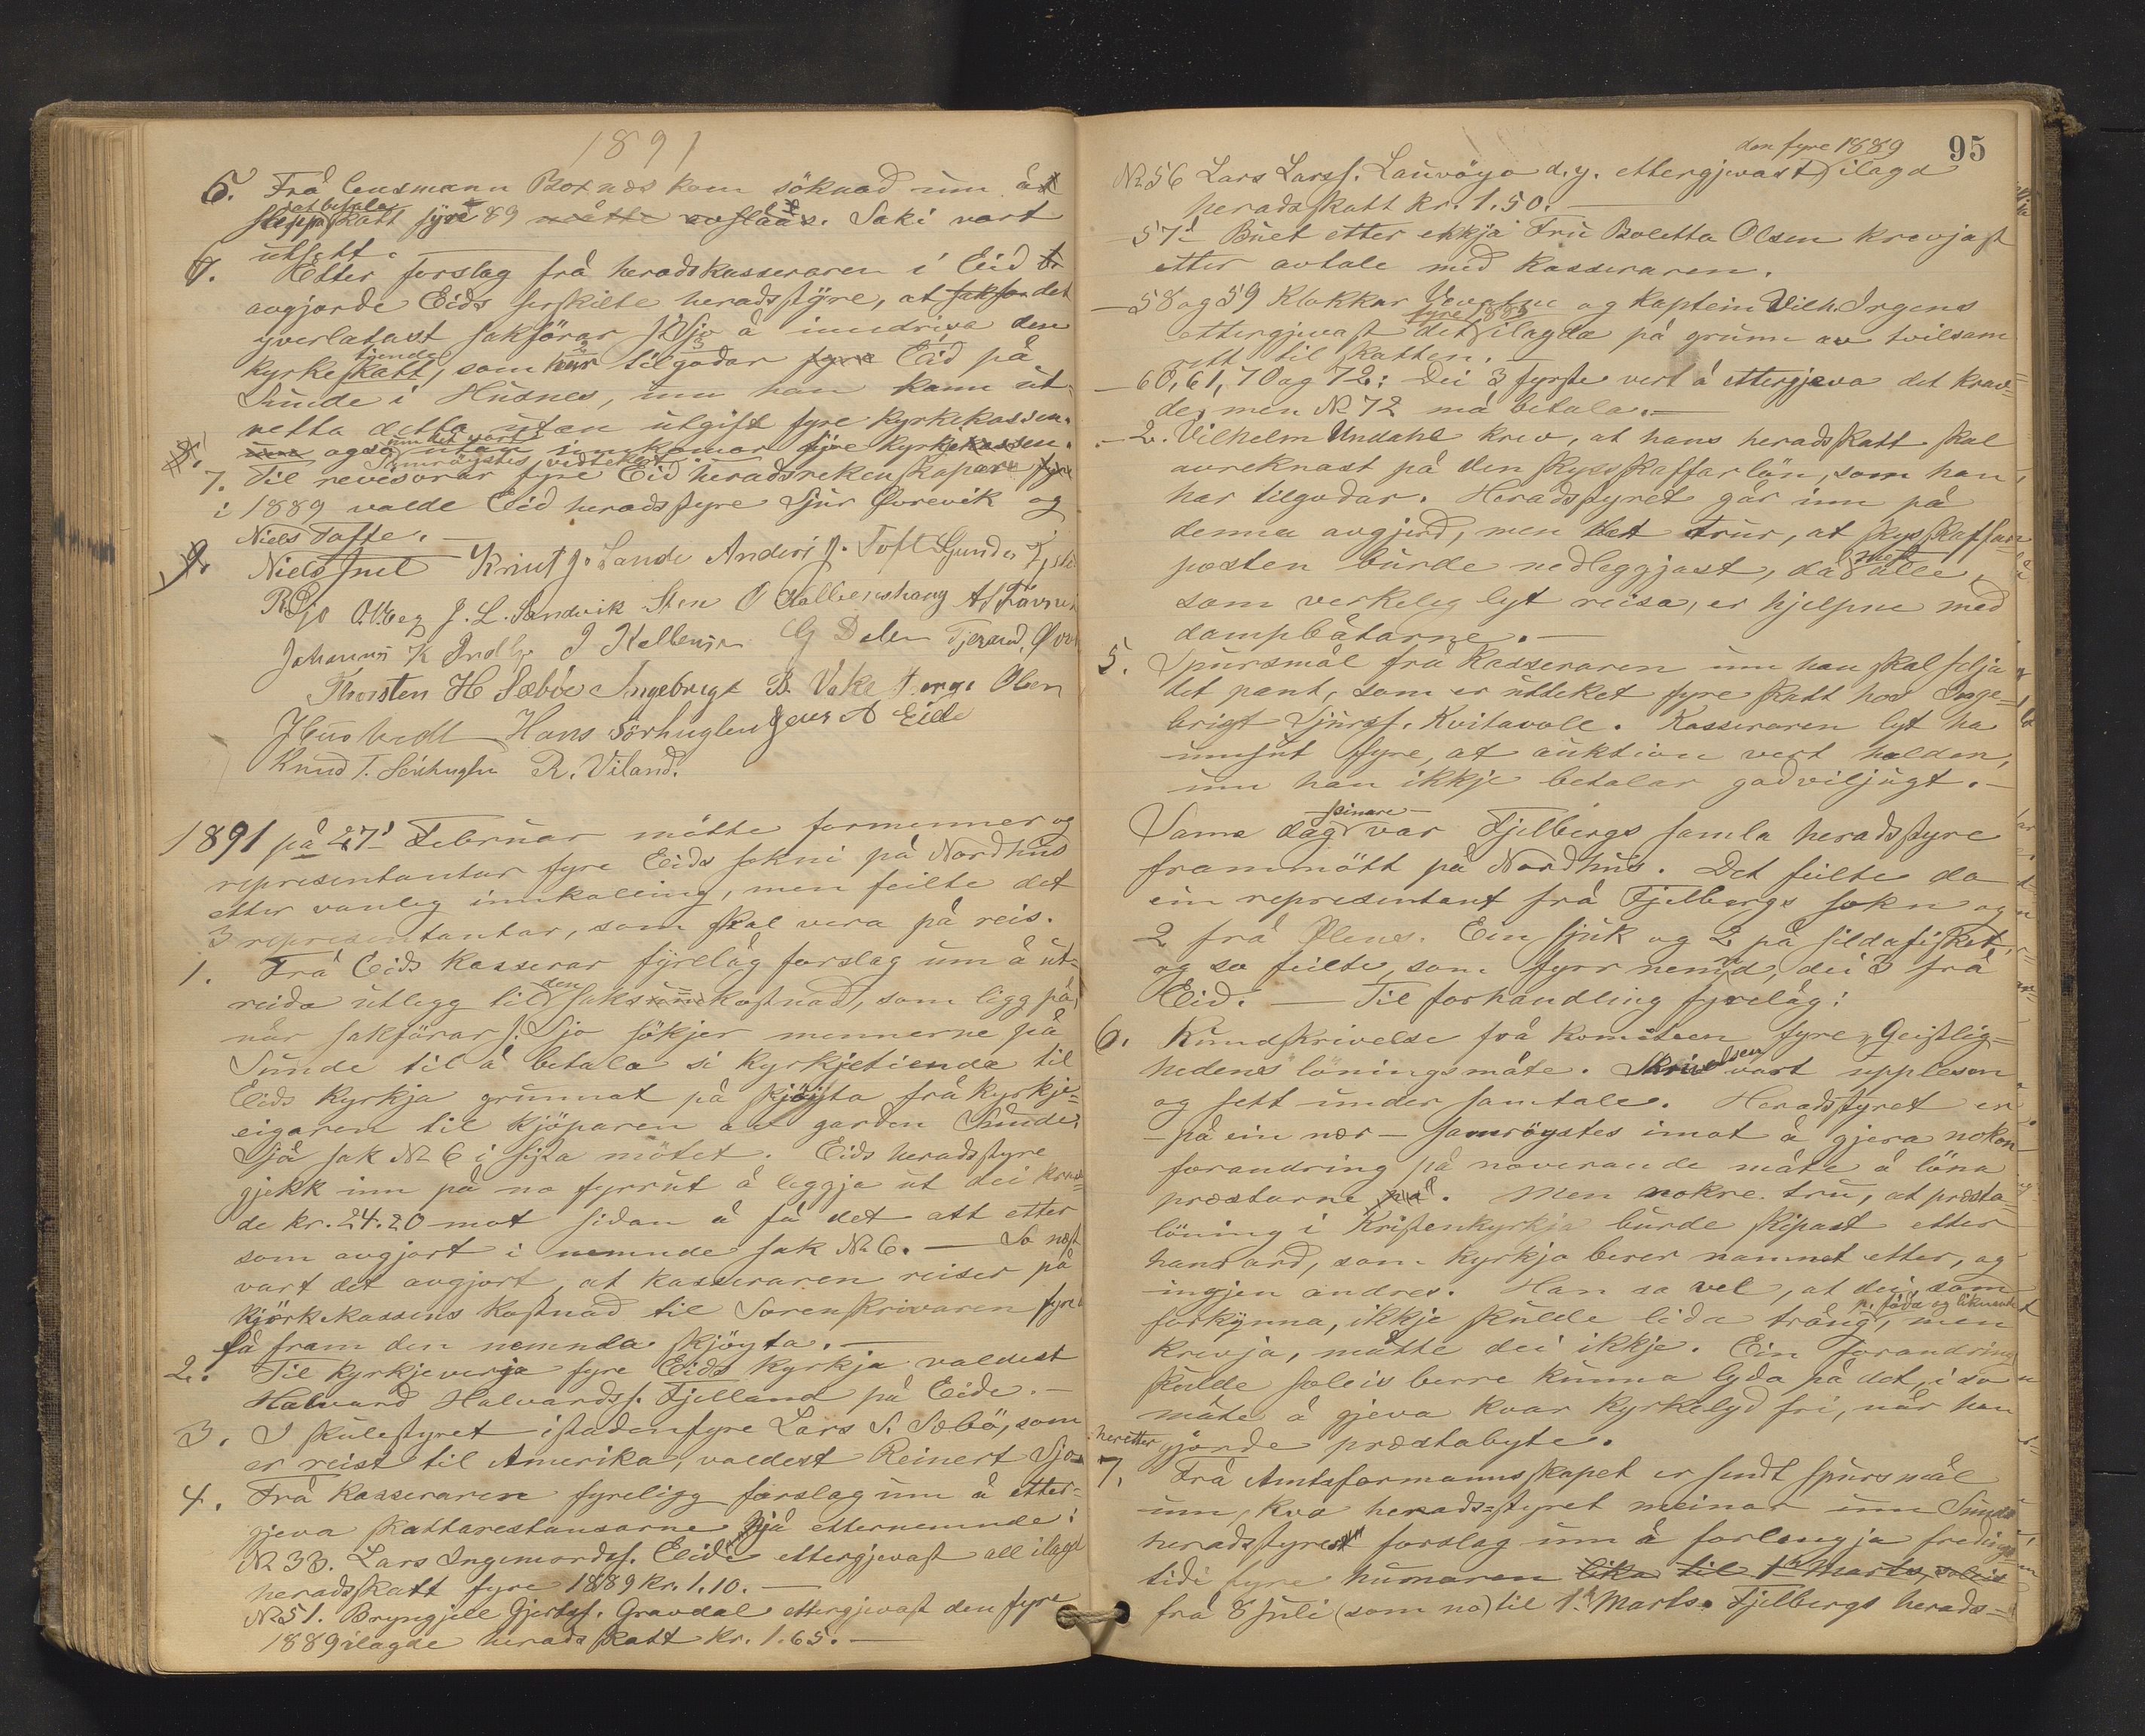 1891
5. Frå lensmann Boxnæs kom söknad um åt
sleppa at betala skatt fyre 89 måtte avslåas. Saki vart
utsett.
6. Etter forslag frå heradskasseraren i Eid
avgjorde Eids serskilte heradsstyre, at det
yverlatast sakförar Sjo å inndriva den
kyrkeskatt, tiende som tilgodar Eid på
Sunde i Husnes, um han kann ut-
retta detta utan utgift fyre kyrkekassen.
um ogso utan inkomar fyre kyrkekassen.
Samröystes vidteket
7. Til revisorar fyre Eid heradsrekenskapar fyre
i 1889 valde Eid heradsstyre Sjur Övrevik og
Niels Tofte.
Niels Juel Knut J. Sande Anders J. Toft Gunder
R. Sjo O. Veg J. L. Sandvik Sten O
Johannes K Indbjo J Kallevig G Dalen Tjerand Övre
Thorsten H Sæbøe Ingebrigt B. Vake Børge Olsen
J Gustvedt Hans Sörhuglen Jens A Eide
Knud T. Sörhuglen R. Viland.
1891 på 27de Februar mötte formenner og
representantar fyre Eids sokni på Nordhus
etter vanleg innkaling, men feilte det
3 representantar, som skal vera på reis.
1. Frå Eids kasserar fyrelåg forslag um å ut-
reida utlegg til den sakskostnad, som ligg på,
når sakförar S. Sjo sökjer mennerne på
Sunde til å betala si kyrkjetiende til
Eids kyrkja grunnat på skjöyta frå kyrkje-
eigaren til kjöparen av garden Sunde,
Sjå sak № 6 i sista mötet. Eids heradsstyre
gjekk inn på no fyrrut å leggja ut dei krav-
de kr. 24.20 mot sidan å få det att etter
som avgjort i nemnde sak № 6. — So næst
vart det avgjort, at kasseraren reiser på
kjörkekassens kostnad til Sorenskrivaren fyre
få fram den nemnda skjöyta. —
2. Til kyrkjeverja fyre Eids kyrkja valdest
Halvard Halvardss. Fjelland på Eide. —
3. I skulestyret istadenfyre Lars S. Sæbö, som
er reist til Amerika, valdest Reinert Sjo
4. Frå kasseraren fyreligg forslag um å etter-
gjeva skattarestansarne hjå etternemnde:
№ 33. Lars Ingemordss. Eide ettergjevast all ilagd
heradsskatt fyre 1889 kr. 1.10. —
№ 51. Bryngjell Gjertss. Gravdal ettergjevast den fyre
1889 ilagde heradsskatt kr. 1.65. —
95
den fyre 1889
№ 56 Lars Larss. Lauvöyo d.y. ettergjevast ilagd
heradsskatt kr. 1.50. —
- 57de Buet etter ekkja Fru Boletta Olsen krevjast
etter avtale med kasseraren.
- 58 og 59 Klokkar og Kaptein Vilh. Irgens
ettergjevast det fyre 1889 ilagda på grunn av tvilsam
rett til skatten. —
- 60, 61, 70 og 72: Dei 3 fyrste vert å ettergjeva det krav-
de, men № 72 må betala. —
- 2. Vilhelm Undahl krev, at hans heradsskatt skal
avreknast på den skysskaffarlön, som han
har tilgodar. Heradsstyret går inn på
denna avgjerd, men det trur, at skysskaffar-
posten burde nedleggjast, då mest alle,
som verkeleg lyt reisa, er hjelpne med
dampbåtarne. —
5. Spursmål frå kasseraren um han skal selja
det pant, som er utteket fyre skatt hos Inge-
brigt Sjurss. Kvitavole. Kasseraren lyt ha
umsut fyre, at auktion vert halden,
um han ikkje betalar godviljugt. —
Sama dag seinare var Fjelbergs samla heradsstyre
frammött på Nordhus. Det feilte da
ein representant frå Fjelbergs sokn og
2 frå Ølens. Ein sjuk og 2 på sildafisket,
og so feilte, som fyrr nemnd, dei 3 frå
Eid. — Til forhandling fyrelåg:
6. Rundskrivelse frå komiteen fyre „Geistlig-
hedens löningsmåte. Skrivelsen vart upplesen
og sett under samtale. Heradsstyret er
— på ein nær — samröystes imot å gjera nokon
forandring på noverande måte å löna
prestarne på. Men nokre tru, at presta-
löning i Kristenkyrkja burde skipast etter
hans ord, som kyrkja berer namnet etter, og
ingjen andres. Han sa vel, at dei som
forkynna, ikkje skulde lida trång, p. föda og liknande men
krevja, måtte dei ikkje. Ein forandring
skulde soleis berre kunna lyda på det, i so
måte å gjeva kvar kyrkelyd fri, når han
heretter gjorde prestabyte.
7. Frå Amtsformannskapet er sendt spursmål
um, kva herads-styret meinar um Sunds
heradsstyres forslag um å forlengja fredings-
tidi fyre humaren lika til 1ste Marts, soleis
frå 8 Juli (som no) til 1ste Marts. Fjelbergs herads-